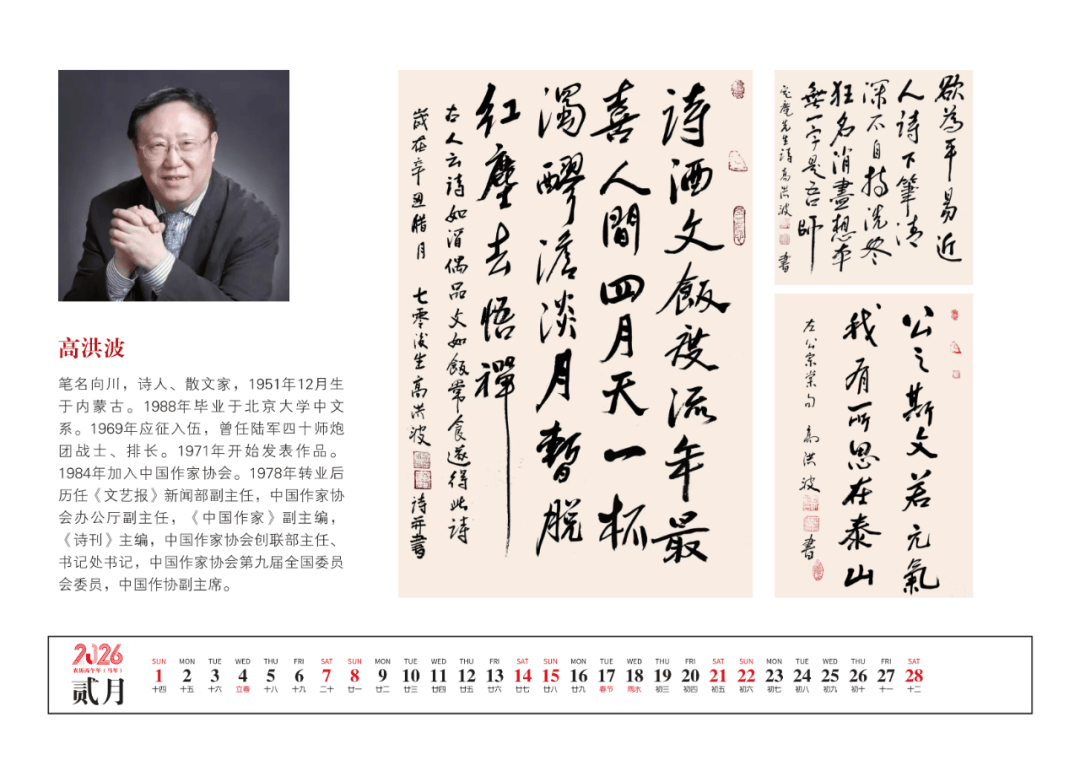 高洪波
笔名向川，诗人、散文家，1951年12月生
于内蒙古。1988年毕业于北京大学中文
系。1969年应征入伍，曾任陆军四十师炮
团战士、排长。1971年开始发表作品。
1984年加入中国作家协会。1978年转业后
历任《文艺报》新闻部副主任，中国作家协
会办公厅副主任，《中国作家》副主编，
《诗刊》主编，中国作家协会创联部主任、
书记处书记，中国作家协会第九届全国委员
会委员，中国作协副主席。
詩酒文飯度流年最
喜人間四月天一杯
濁醪澹淡月暫脫
紅塵去悟禪
古人云詩如酒偶品文如飯常食遂得此詩
歲在辛丑臘月 七零後生高洪波
詩并書
欲為平易近
人詩下筆清
深不自持洗盡
狂名消盡想本
無一字是吾師
定庵先生詩高洪波
書
公之斯文若元氣
我有所思在泰山
左公宗棠句 高洪波
書
2026
农历丙午年（马年）
贰月
SUN MON TUE WED THU FRI SAT SUN MON TUE WED THU FRI SAT SUN MON TUE WED THU FRI SAT SUN MON TUE WED THU FRI SAT
1 2 3 4 5 6 7 8 9 10 11 12 13 14 15 16 17 18 19 20 21 22 23 24 25 26 27 28
十四 十五 十六 立春 十八 十九 二十 廿一 廿二 廿三 廿四 廿五 廿六 廿七 廿八 廿九 春节 雨水 初三 初四 初五 初六 初七 初八 初九 初十 十一 十二